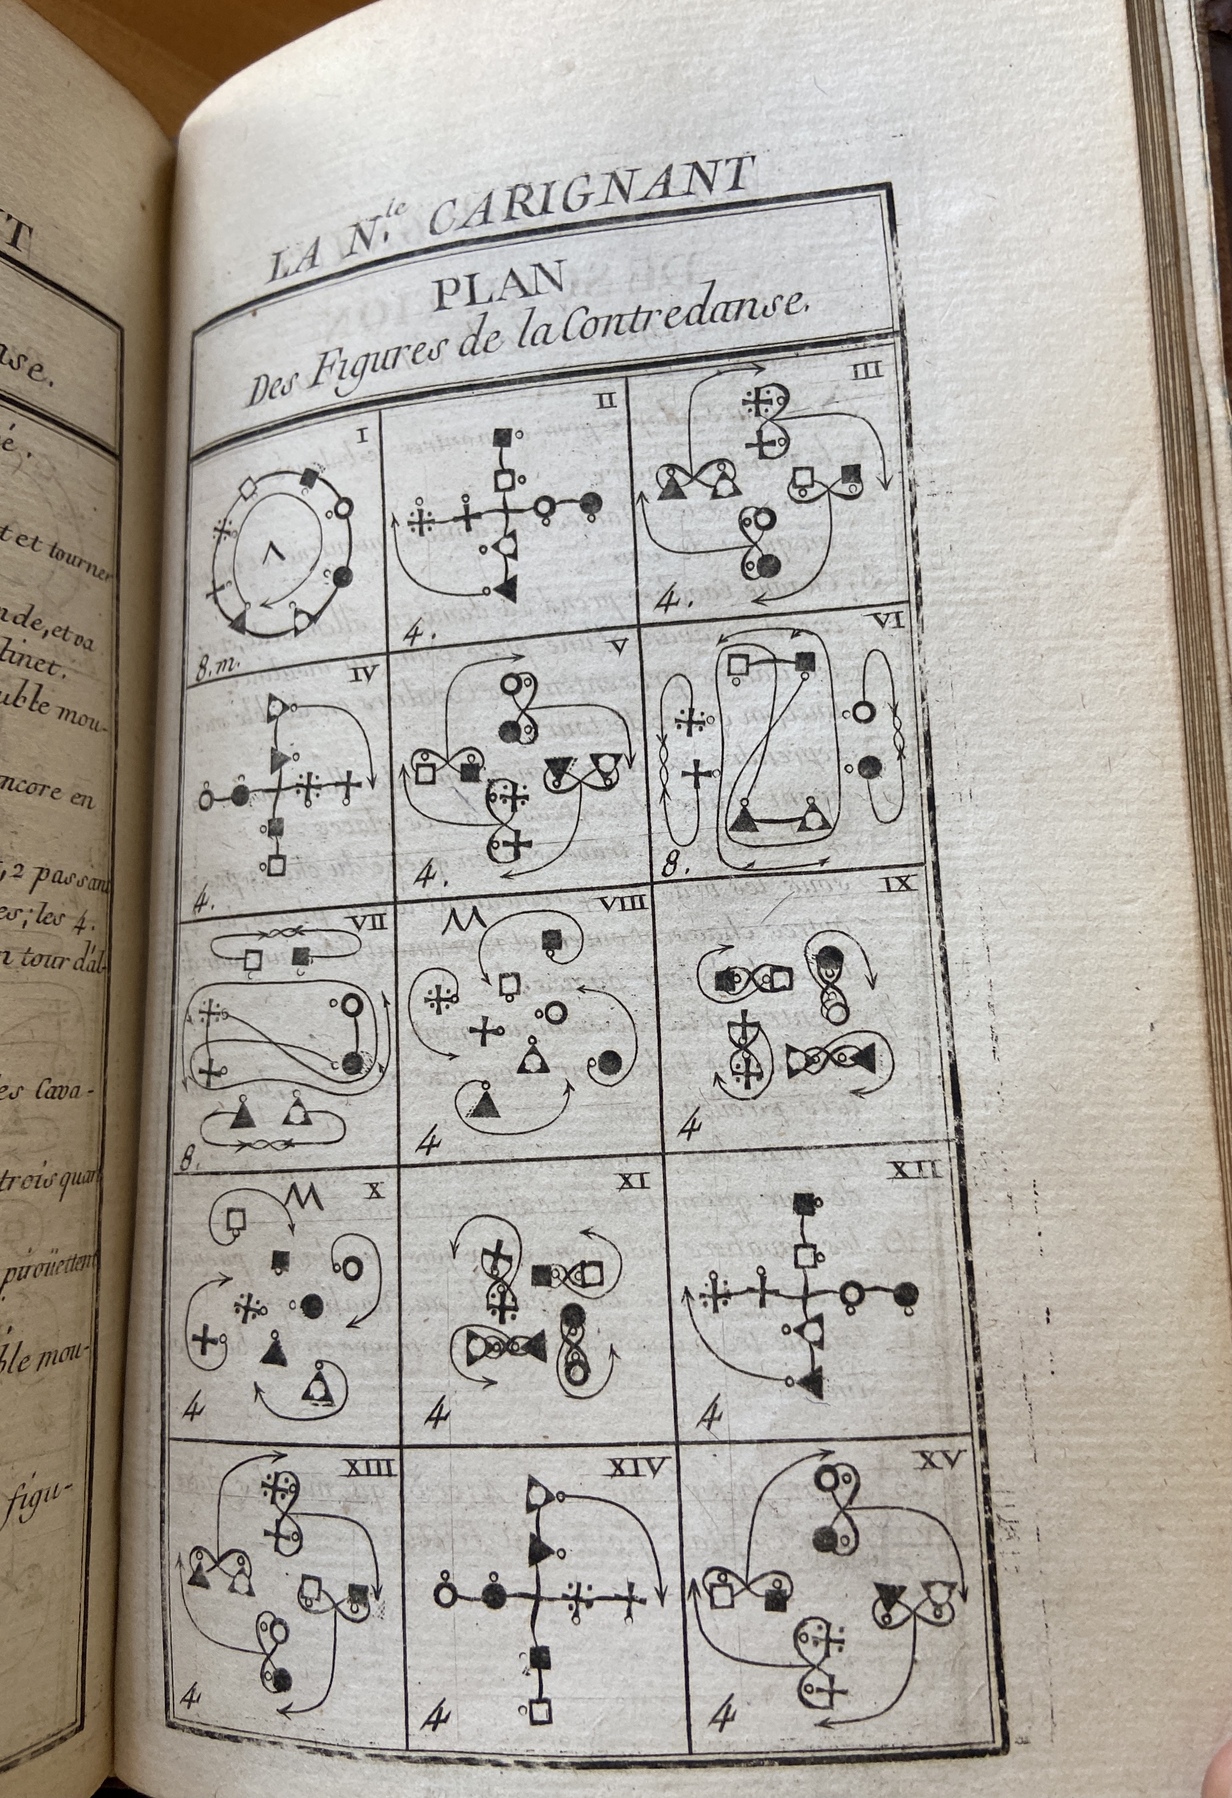 T
nse.
é.
t et tourner
nde, et va
tinet.
uble mou-
ncore en
, 2 passant
es; les 4.
n tour d'al-
es Cava-
trois quar
piroüettent
ble mou-
figu-
LA N.le CARIGNANT
PLAN
Des Figures de la Contredanse.
I
8. m.
II
4.
III
4.
IV
4.
V
4.
VI
8.
VII
8.
VIII
4
IX
4
X
4
XI
4
XII
4
XIII
4
XIV
4
XV
4